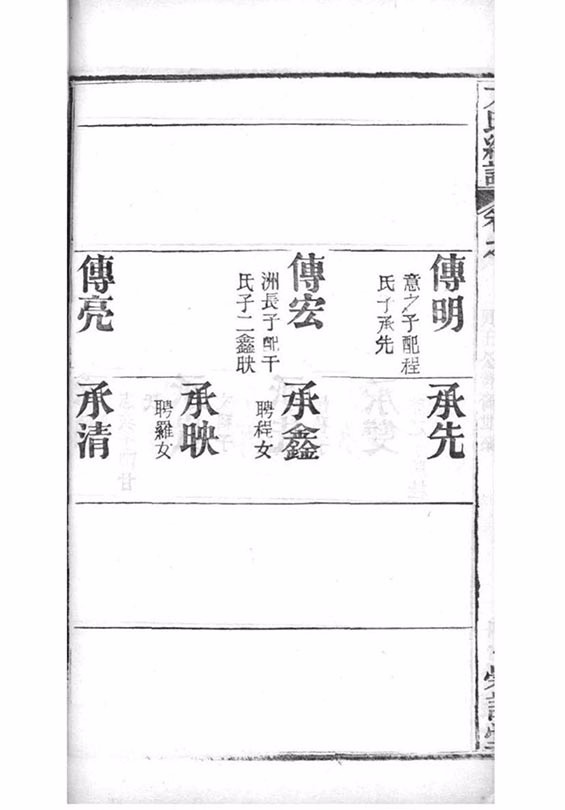 氏
傳明
意之子配程
氏子承先
傳宏
洲長子配干
氏子二鑫映
傳亮
承先
承鑫
聘程女
承映
聘羅女
承清